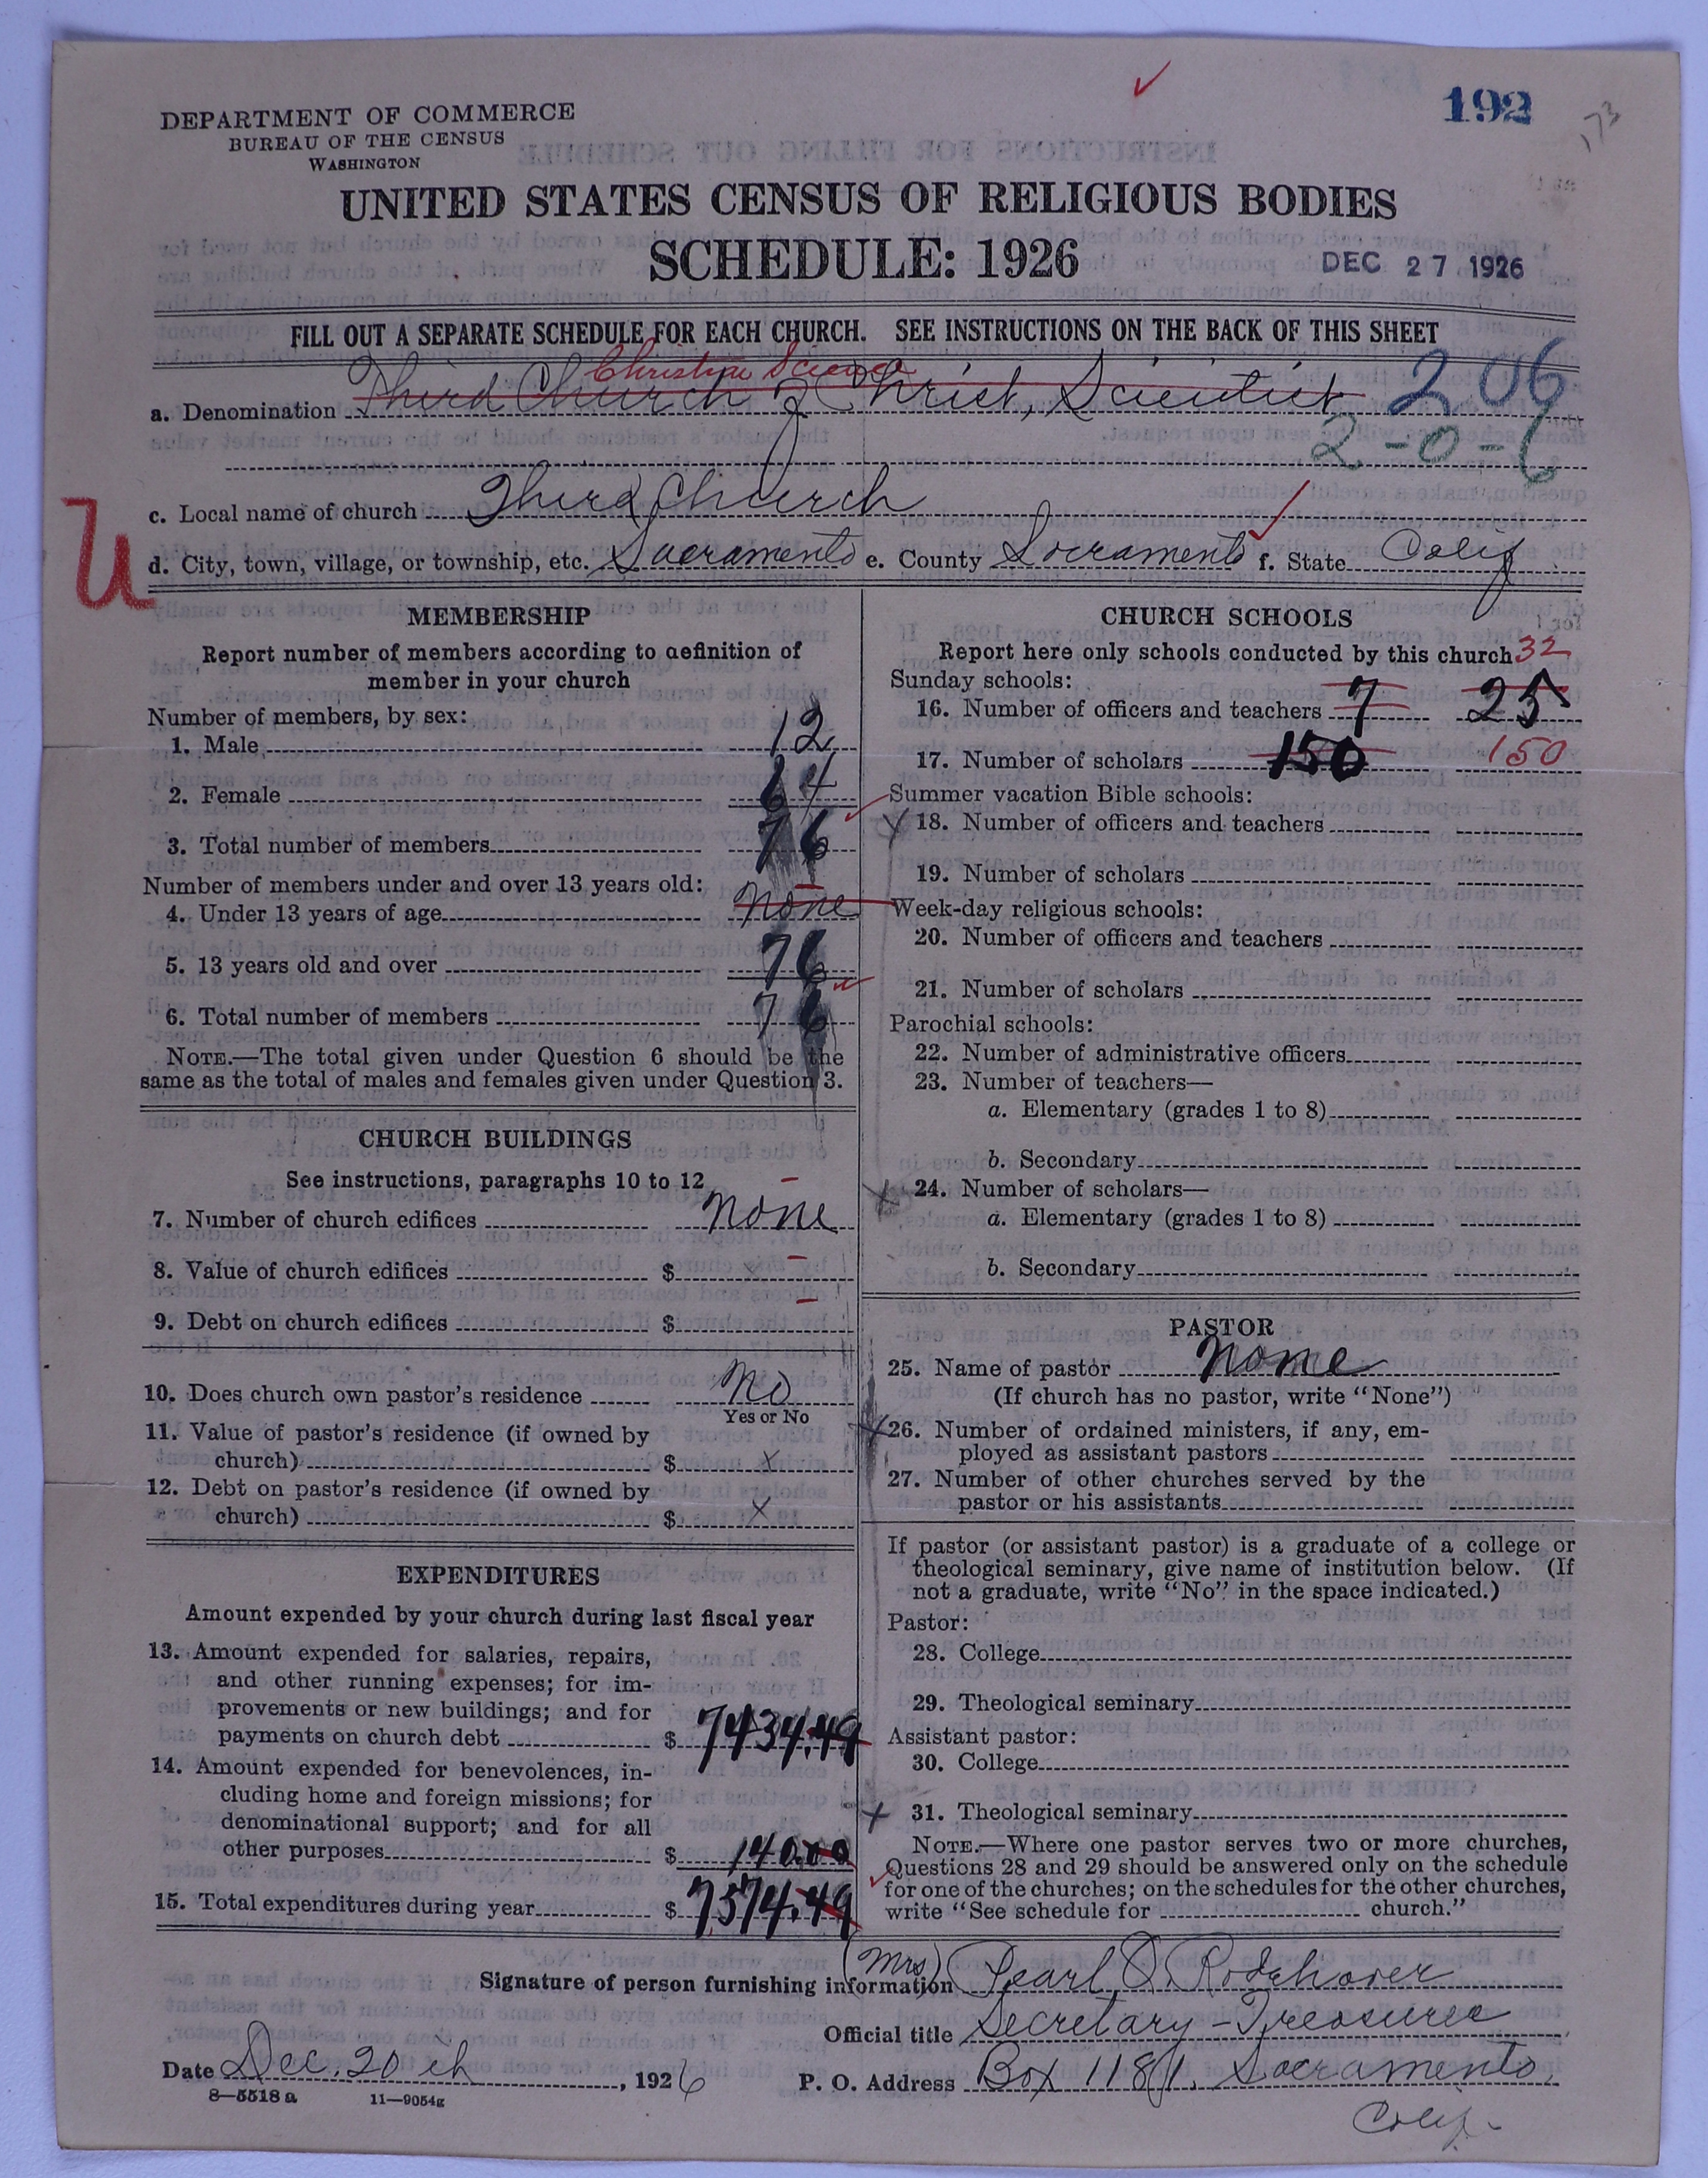 192
173
DEPARTMENT OF COMMERCE
BUREAU OF THE CENSUS
WASHINGTON
UNITED STATES CENSUS OF RELIGIOUS BODIES
SCHEDULE: 1926
DEC 27 1926
FILL OUT A SEPARATE SCHEDULE FOR EACH CHURCH. SEE INSTRUCTIONS ON THE BACK OF THIS SHEET
Christian Science
a. Denomination Third Church of Christ, Scientist 206
2-0-6
c. Local name of church Third Church
U
d. City, town, village, or township, etc. Sacramento e. County Sacramento f. State Calif
MEMBERSHIP
Report number of members according to definition of
member in your church
Number of members, by sex:
1. Male 12
2. Female 64
3. Total number of members 76
Number of members under and over 13 years old:
4. Under 13 years of age none
5. 13 years old and over 76
6. Total number of members 76
NOTE.—The total given under Question 6 should be the
same as the total of males and females given under Question 3.
CHURCH BUILDINGS
See instructions, paragraphs 10 to 12
7. Number of church edifices none
8. Value of church edifices $
9. Debt on church edifices $
10. Does church own pastor's residence No
Yes or No
11. Value of pastor's residence (if owned by
church) $ x
12. Debt on pastor's residence (if owned by
church) $ x
EXPENDITURES
Amount expended by your church during last fiscal year
13. Amount expended for salaries, repairs,
and other running expenses; for im-
provements or new buildings; and for
payments on church debt $ 7434.49
14. Amount expended for benevolences, in-
cluding home and foreign missions; for
denominational support; and for all
other purposes $ 140.00
15. Total expenditures during year $ 7574.49
CHURCH SCHOOLS
Report here only schools conducted by this church 32
Sunday schools:
16. Number of officers and teachers 7 25
17. Number of scholars 150 150
Summer vacation Bible schools:
18. Number of officers and teachers
19. Number of scholars
Week-day religious schools:
20. Number of officers and teachers
21. Number of scholars
Parochial schools:
22. Number of administrative officers
23. Number of teachers—
a. Elementary (grades 1 to 8)
b. Secondary
24. Number of scholars—
a. Elementary (grades 1 to 8)
b. Secondary
PASTOR
25. Name of pastor none
(If church has no pastor, write "None")
26. Number of ordained ministers, if any, em-
ployed as assistant pastors
27. Number of other churches served by the
pastor or his assistants
If pastor (or assistant pastor) is a graduate of a college or
theological seminary, give name of institution below. (If
not a graduate, write "No" in the space indicated.)
Pastor:
28. College
29. Theological seminary
Assistant pastor:
30. College
31. Theological seminary
NOTE.—Where one pastor serves two or more churches,
Questions 28 and 29 should be answered only on the schedule
for one of the churches; on the schedules for the other churches,
write "See schedule for church."
Signature of person furnishing information (Mrs) Pearl O. Rodehaver
Official title Secretary-Treasurer
Date Dec. 20th, 1926 P. O. Address Box 1181, Sacramento,
Calif.
8—5518 a 11—9054g